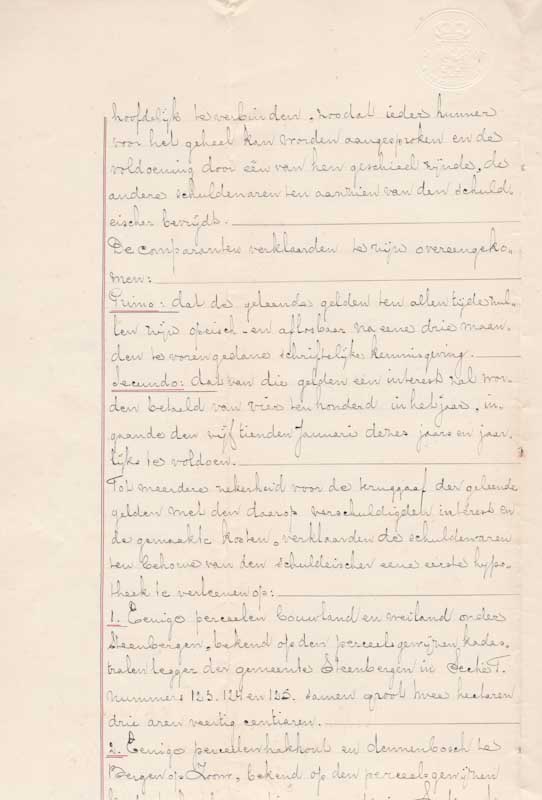 hoofdelijk te verbinden, zoodat ieder hunner
voor het geheel kan worden aangesproken en de
voldoening door één van hen geschied zijnde, de
andere schuldenaren ten aanzien van den schuld-
eischer bevrijdt.
De comparanten verklaarden te zijn overeengeko-
men:
Primo: dat de geleende gelden ten allen tijde zul-
len zijn opeisch- en aflosbaar na eene drie maan-
den te voren gedane schriftelijke kennisgeving.
Secundo: dat van die gelden een interest zal wor-
den betaald van vier ten honderd in het jaar, in-
gaande den vijftienden Januari dezes jaars en jaar-
lijks te voldoen.
Tot meerdere zekerheid voor de teruggaaf der geleende
gelden met den daarop verschuldigden interest en
de gemaakte kosten, verklaarden de schuldenaren
ten behoeve van den schuldeischer eene eerste hypo-
theek te verleenen op:
1. Eenige perceelen bouwland en weiland onder
Steenbergen, bekend op den perceelsgewijzen kadas-
tralen legger der gemeente Steenbergen in Sectie T.
nummers 123. 124 en 125. samen groot twee hectaren
drie aren veertig centiaren.
2. Eenige perceelen hakhout en dennenbosch te
Bergen op Zoom, bekend op den perceelsgewijzen